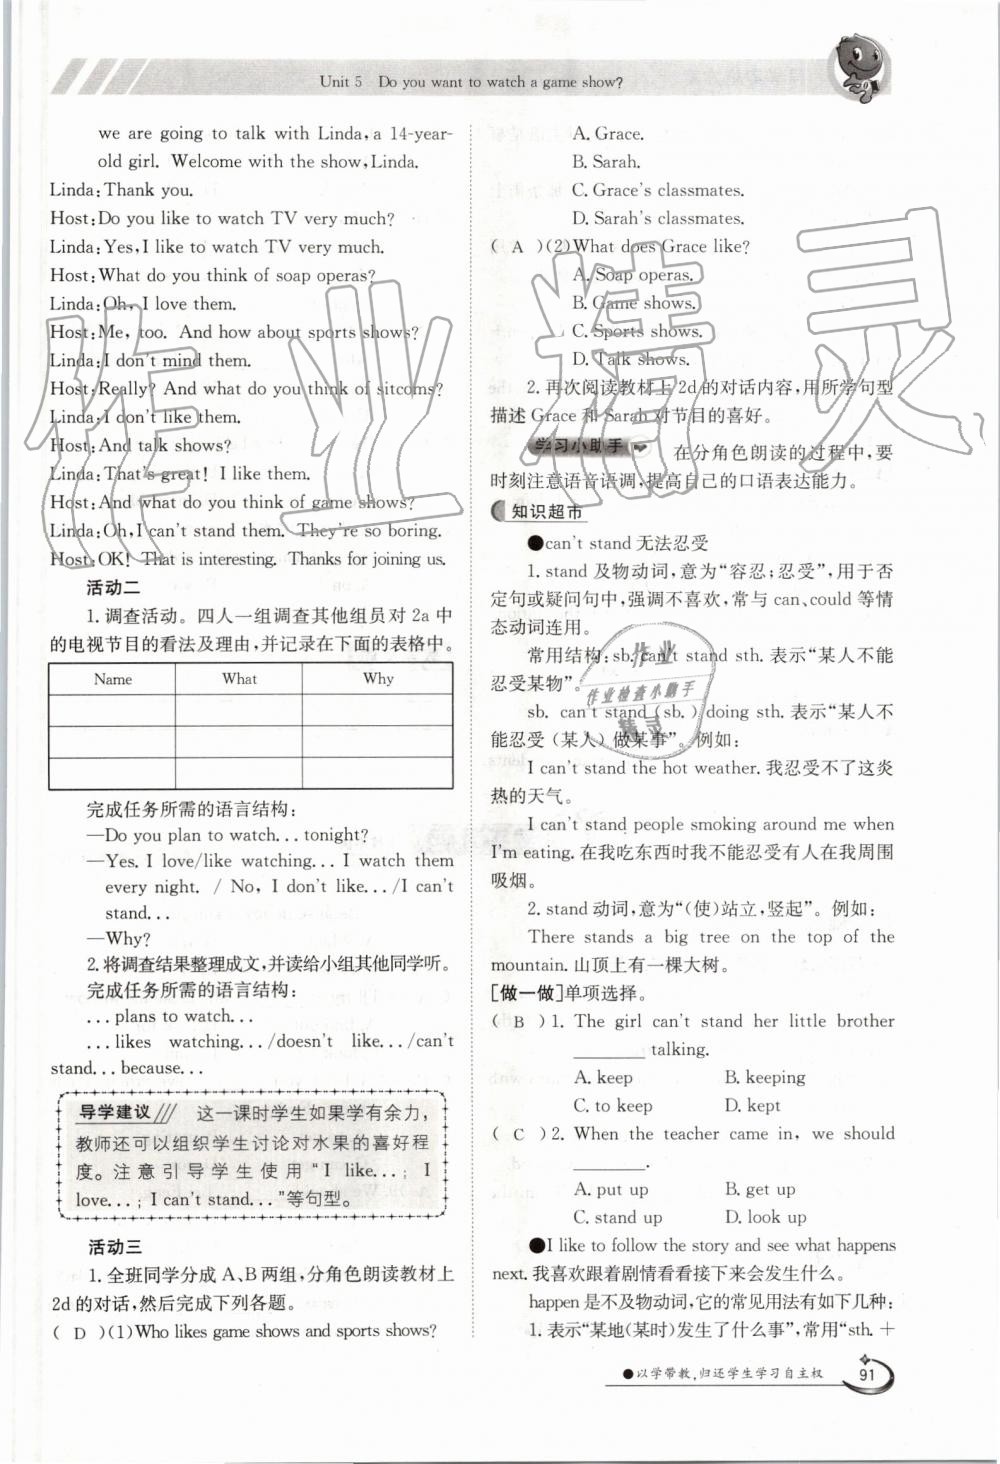 Unit 5　Do you want to watch a game show?
we are going to talk with Linda, a 14-year-
old girl. Welcome with the show, Linda.
Linda: Thank you.
Host: Do you like to watch TV very much?
Linda: Yes, I like to watch TV very much.
Host: What do you think of soap operas?
Linda: Oh, I love them.
Host: Me, too. And how about sports shows?
Linda: I don't mind them.
Host: Really? And what do you think of sitcoms?
Linda: I don't like them.
Host: And talk shows?
Linda: That's great! I like them.
Host: And what do you think of game shows?
Linda: Oh, I can't stand them. They're so boring.
Host: OK! That is interesting. Thanks for joining us.
活动二
1. 调查活动。四人一组调查其他组员对 2a 中
的电视节目的看法及理由,并记录在下面的表格中。
Name What Why
完成任务所需的语言结构:
—Do you plan to watch... tonight?
—Yes. I love/like watching... I watch them
every night. / No, I don't like.../I can't
stand...
—Why?
2. 将调查结果整理成文,并读给小组其他同学听。
完成任务所需的语言结构:
...plans to watch...
...likes watching.../doesn't like.../can't
stand... because...
导学建议/// 这一课时学生如果学有余力,
教师还可以组织学生讨论对水果的喜好程
度。注意引导学生使用“I like...; I
love...; I can't stand...”等句型。
活动三
1. 全班同学分成 A、B 两组,分角色朗读教材上
2d 的对话,然后完成下列各题。
( D )(1)Who likes game shows and sports shows?
A. Grace.
B. Sarah.
C. Grace's classmates.
D. Sarah's classmates.
( A )(2)What does Grace like?
A. Soap operas.
B. Game shows.
C. Sports shows.
D. Talk shows.
2. 再次阅读教材上 2d 的对话内容,用所学句型
描述 Grace 和 Sarah 对节目的喜好。
学习小助手 在分角色朗读的过程中,要
时刻注意语音语调,提高自己的口语表达能力。
知识超市
●can't stand 无法忍受
1. stand 及物动词,意为“容忍;忍受”,用于否
定句或疑问句中,强调不喜欢,常与 can、could 等情
态动词连用。
常用结构: sb. can't stand sth. 表示“某人不能
忍受某物”。
sb. can't stand (sb.) doing sth. 表示“某人不
能忍受(某人)做某事”。例如:
I can't stand the hot weather. 我忍受不了这炎
热的天气。
I can't stand people smoking around me when
I'm eating. 在我吃东西时我不能忍受有人在我周围
吸烟。
2. stand 动词,意为“(使)站立,竖起”。例如:
There stands a big tree on the top of the
mountain. 山顶上有一棵大树。
[做一做]单项选择。
( B )1. The girl can't stand her little brother
________ talking.
A. keep B. keeping
C. to keep D. kept
( C )2. When the teacher came in, we should
________.
A. put up B. get up
C. stand up D. look up
●I like to follow the story and see what happens
next. 我喜欢跟着剧情看看接下来会发生什么。
happen 是不及物动词,它的常见用法有如下几种:
1. 表示“某地(某时)发生了什么事”,常用“sth. +
●以学带教,归还学生学习自主权
91
作业精灵
作业
作业检查小助手
精灵